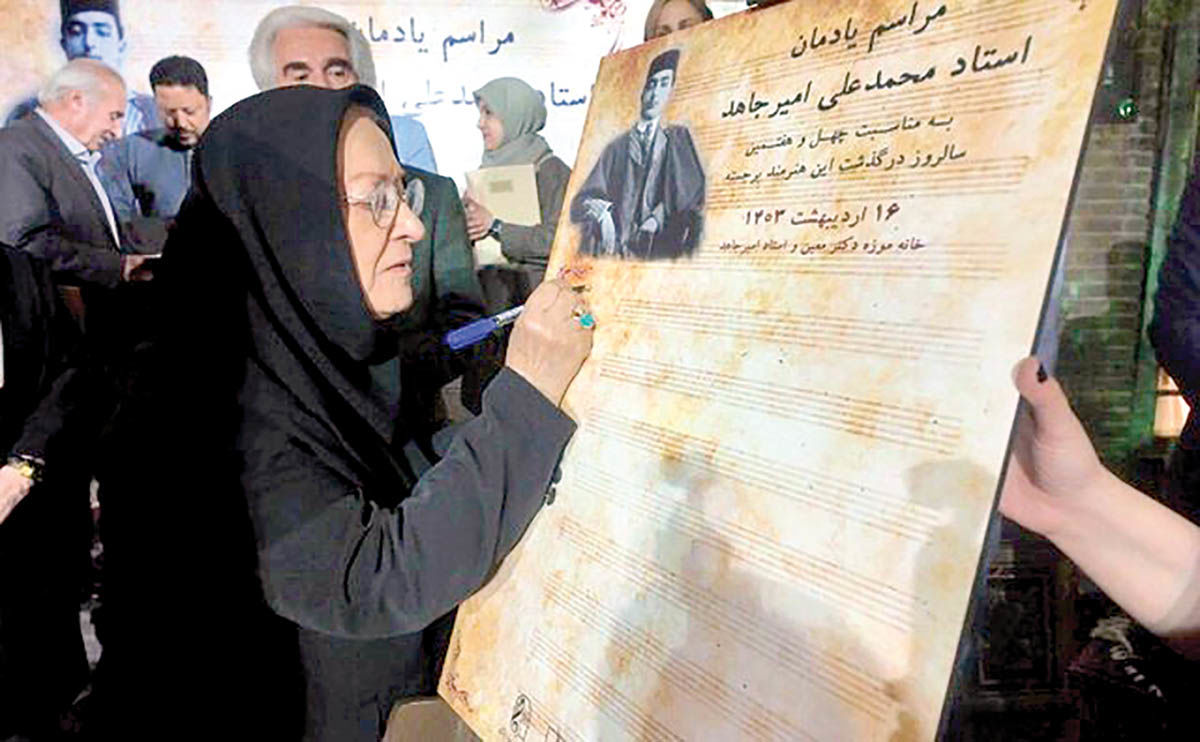 مراسم یادمان
استاد محمدعلی امیرجاهد
به مناسبت چهل و هفتمین
سالروز درگذشت این هنرمند برجسته
۱۶ اردیبهشت ۱۴۰۳
خانه موزه دکتر معین و استاد امیرجاهد
مراسم یادمان
استاد محمدعلی ا